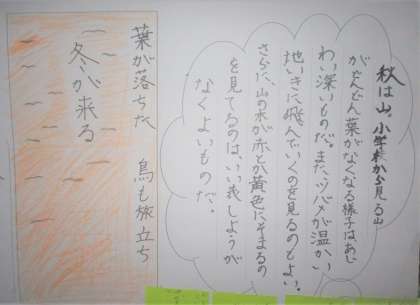 秋は山。小学校から見る山
がだんだん葉がなくなる様子はあじ
わい深いものだ。また、ツバメが温かい
地いきに飛んでいくのを見るのもよい。
さらに、山の木が赤とか黄色にそまるの
を見てるのは、いい表しようが
なくよいものだ。
葉が落ちた 鳥も旅立ち
冬が来る